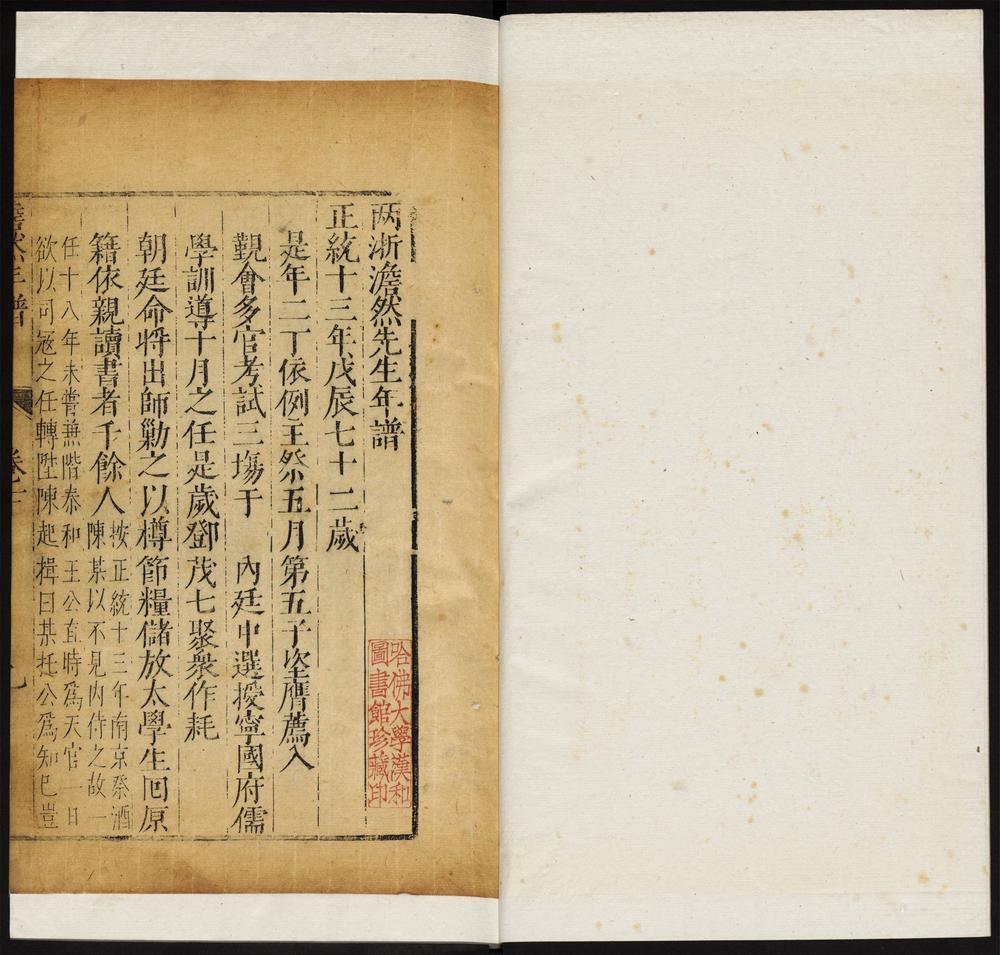 两浙澹然先生年譜
正統十三年戊辰七十二歲
是年二丁依例主祭五月第五子垐膺薦入
覲會多官考試三塲于　內廷中選授寧國府儒
學訓導十月之任是歲鄧茂七聚衆作耗
朝廷命將出師勦之以樽節糧儲放太學生回原
籍依親讀書者千餘人
按正統十三年南京祭酒
陳某以不見內侍之故一
任十八年未嘗無階泰和王公直時爲天官一日
欲以司冦之任轉陞陳起揖曰某托公爲知己豈
澹然年譜
卷十
九
哈佛大學漢和
圖書館珍藏印